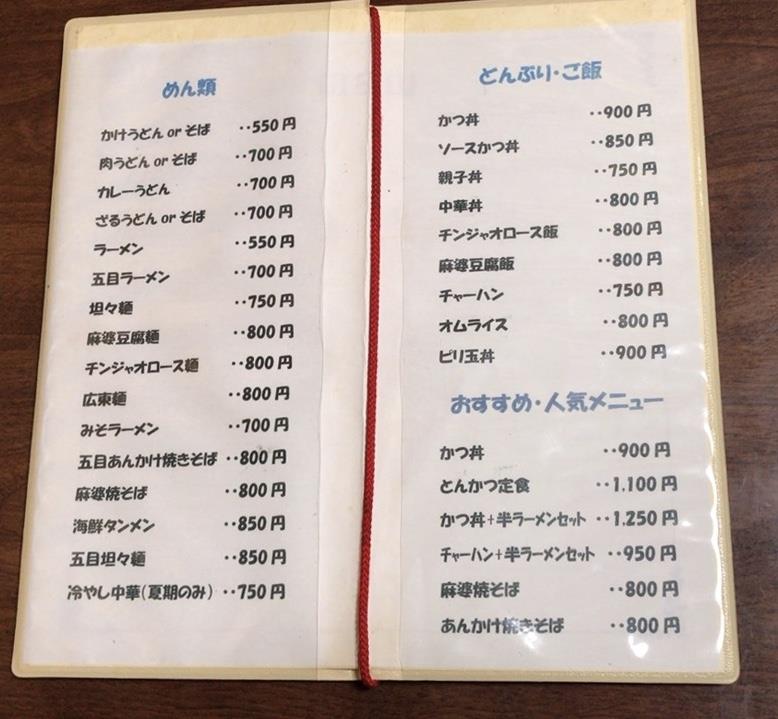 めん類
かけうどん or そば ‥550 円
肉うどん or そば ‥700 円
カレーうどん ‥700 円
ざるうどん or そば ‥700 円
ラーメン ‥550 円
五目ラーメン ‥700 円
坦々麺 ‥750 円
麻婆豆腐麺 ‥800 円
チンジャオロース麺 ‥800 円
広東麺 ‥800 円
みそラーメン ‥700 円
五目あんかけ焼きそば ‥800 円
麻婆焼そば ‥800 円
海鮮タンメン ‥850 円
五目坦々麺 ‥850 円
冷やし中華(夏期のみ) ‥750 円
どんぶり・ご飯
かつ丼 ‥900 円
ソースかつ丼 ‥850 円
親子丼 ‥750 円
中華丼 ‥800 円
チンジャオロース飯 ‥800 円
麻婆豆腐飯 ‥800 円
チャーハン ‥750 円
オムライス ‥800 円
ピリ玉丼 ‥900 円
おすすめ・人気メニュー
かつ丼 ‥900 円
とんかつ定食 ‥1.100 円
かつ丼+半ラーメンセット ‥1.250 円
チャーハン+半ラーメンセット ‥950 円
麻婆焼そば ‥800 円
あんかけ焼きそば ‥800 円